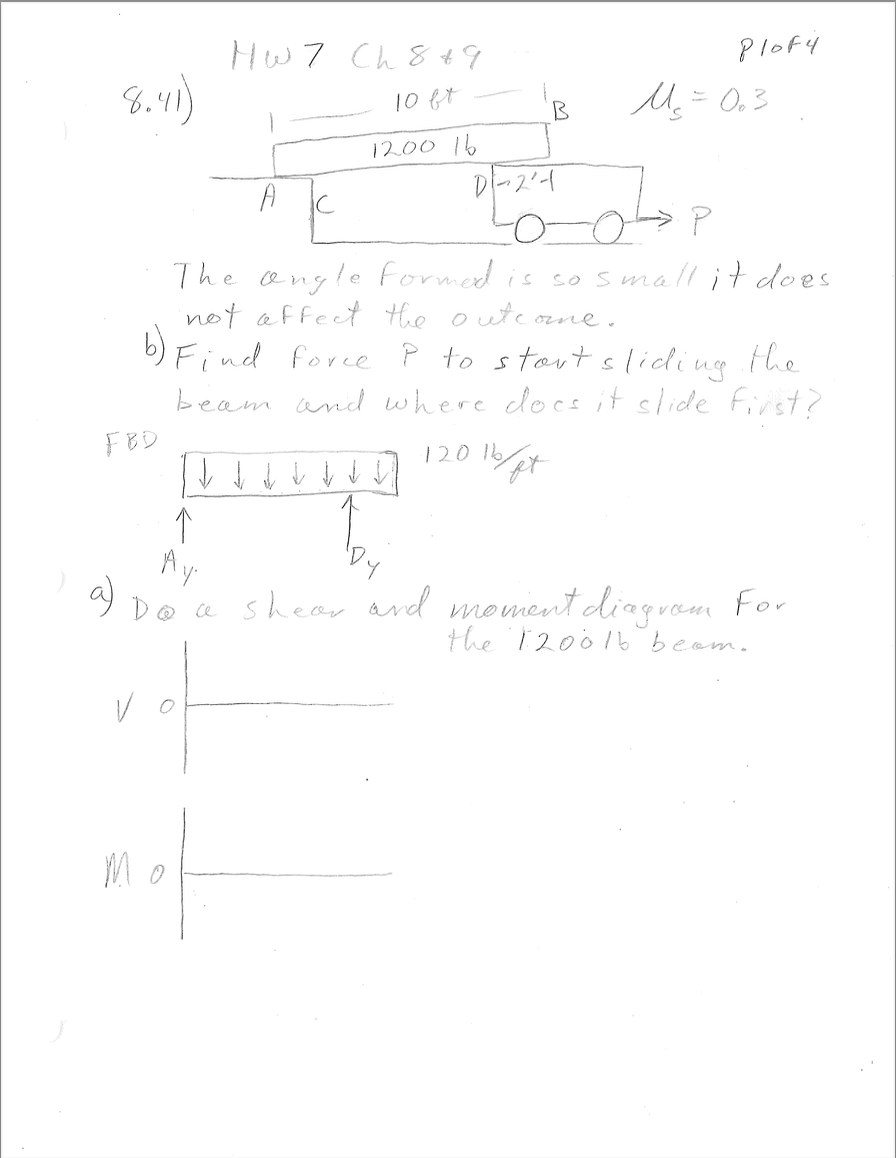 HW7 Ch 8 & 9
P1 of 4
8.41)
10 ft
B
μs = 0.3
1200 lb
A
C
D
2'
P
The angle formed is so small it does
not affect the outcome.
b) Find force P to start sliding the
beam and where does it slide first?
FBD
120 lb/ft
Ay.
Dy
a) Do a shear and moment diagram For
the 1200 lb beam.
V 0
M 0